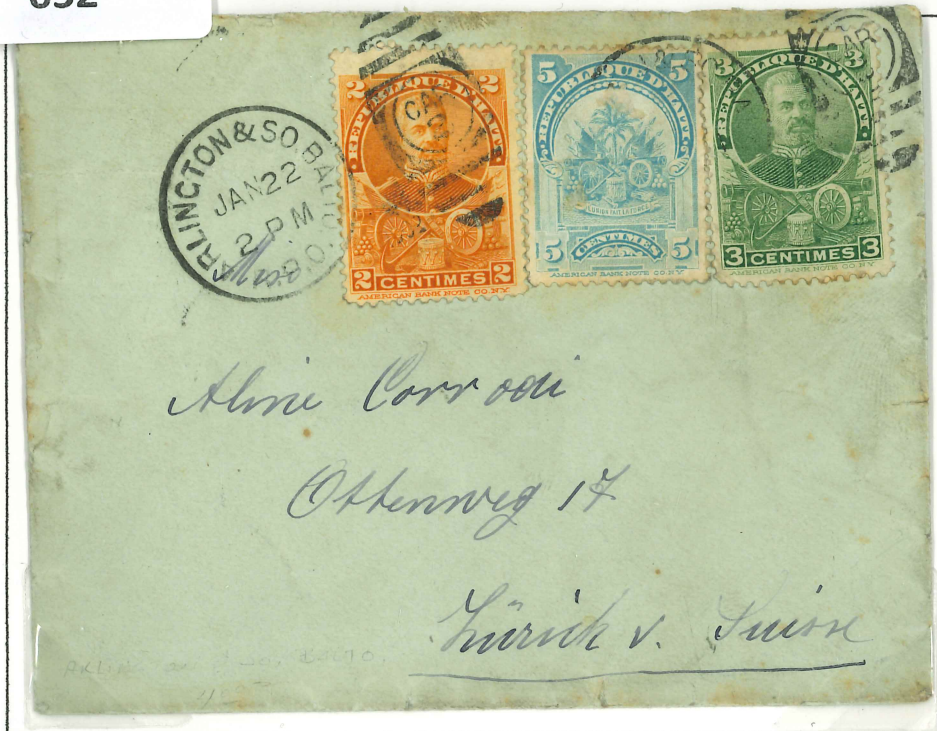 ARLINGTON & SO. BALTO
JAN 22
2 PM
R.P.O.
2 2
REPUBLIQUE D'HAITI
2 CENTIMES 2
AMERICAN BANK NOTE CO. N.Y.
5 5
REPUBLIQUE D'HAITI
L'UNION FAIT LA FORCE
5 CENTIMES 5
AMERICAN BANK NOTE CO. N.Y.
3 3
REPUBLIQUE D'HAITI
3 CENTIMES 3
AMERICAN BANK NOTE CO. N.Y.
Miss
Aline Corrodi
Ottenweg 17
Zürich v. Suisse